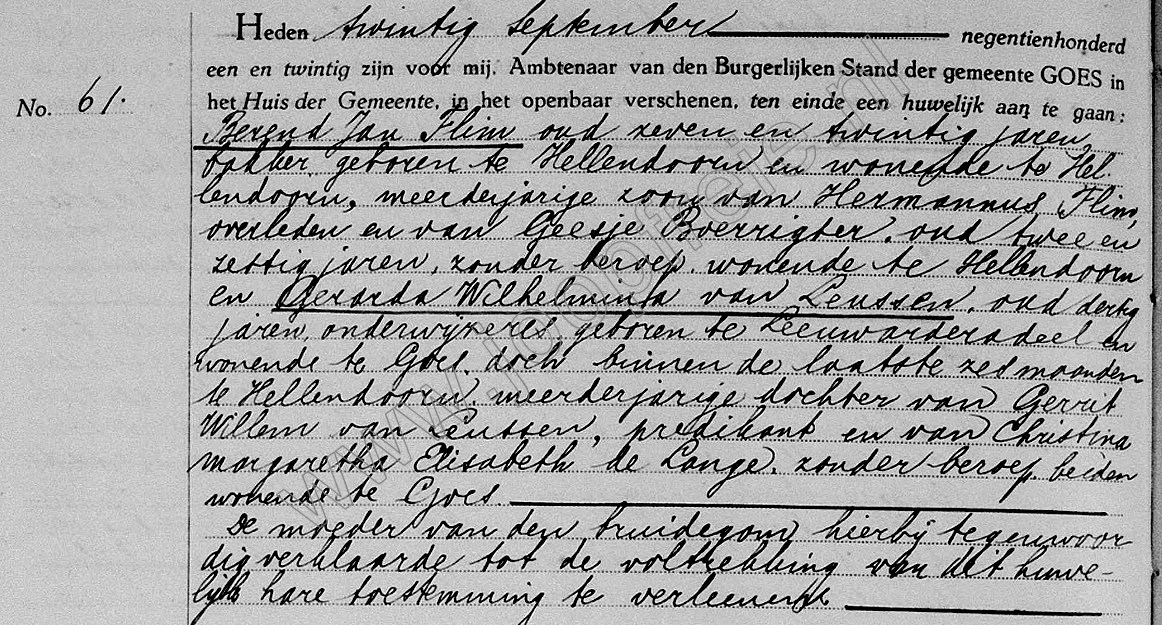 Heden twintig September negentienhonderd
een en twintig zijn voor mij, Ambtenaar van den Burgerlijken Stand der gemeente GOES in
No. 61. het Huis der Gemeente, in het openbaar verschenen, ten einde een huwelijk aan te gaan:
Berend Jan Flim oud zeven en twintig jaren,
bakker, geboren te Hellendoorn en wonende te Hel-
lendoorn, meerderjarige zoon van Hermannus Flim,
overleden en van Geesje Boerrigter, oud twee en
zestig jaren, zonder beroep, wonende te Hellendoorn
en Gerarda Wilhelmina van Leussen, oud dertig
jaren, onderwijzeres, geboren te Leeuwarderadeel en
wonende te Goes, doch binnen de laatste zes maanden
te Hellendoorn, meerderjarige dochter van Gerrit
Willem van Leussen, predikant en van Christina
Margaretha Elisabeth de Lange, zonder beroep, beiden
wonende te Goes.
De moeder van den bruidegom hierbij tegenwoor-
dig verklaarde tot de voltrekking van dit huwe-
lijk hare toestemming te verleenen.